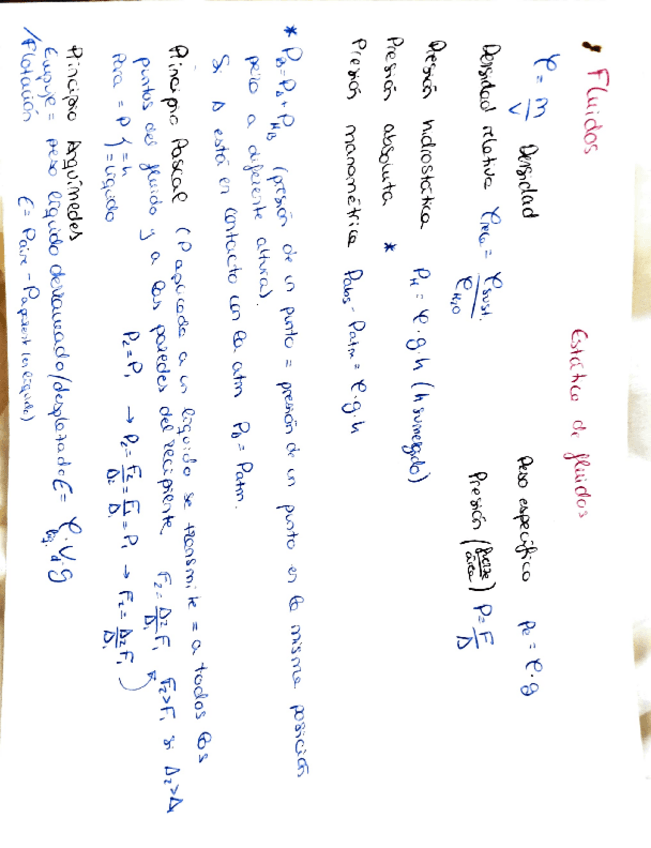 Fluidos
Estática de fluidos
φ = m/V Densidad
Peso específico Pe = φ·g
Densidad relativa φrela = φsust./φH₂O
Presión (fuerza/área) P = F/A
Presión hidrostática PH = φ·g·h (h sumergido)
Presión absoluta *
Presión manométrica Pabs - Patm = φ·g·h
* PB = PA + PHB (presión de un punto = presión de un punto en la misma posición
pero a diferente altura).
Si A está en contacto con la atm PA = Patm.
Principio Pascal (P aplicada a un líquido se transmite = a todos los
puntos del fluido y a las paredes del recipiente. F₂ = A₂/A₁ F₁ F₂>F₁ si A₂>A₁
Para = P { = h
= líquido
P₂ = P₁ → P₂ = F₂/A₂ = F₁/A₁ = P₁ → F₂ = A₂/A₁ F₁ )
Principio Arquímedes
Empuje = peso líquido desalojado/desplazado E = φlíq.·Vd·g
/Flotación
E = Paire - Paparent (en líquido)